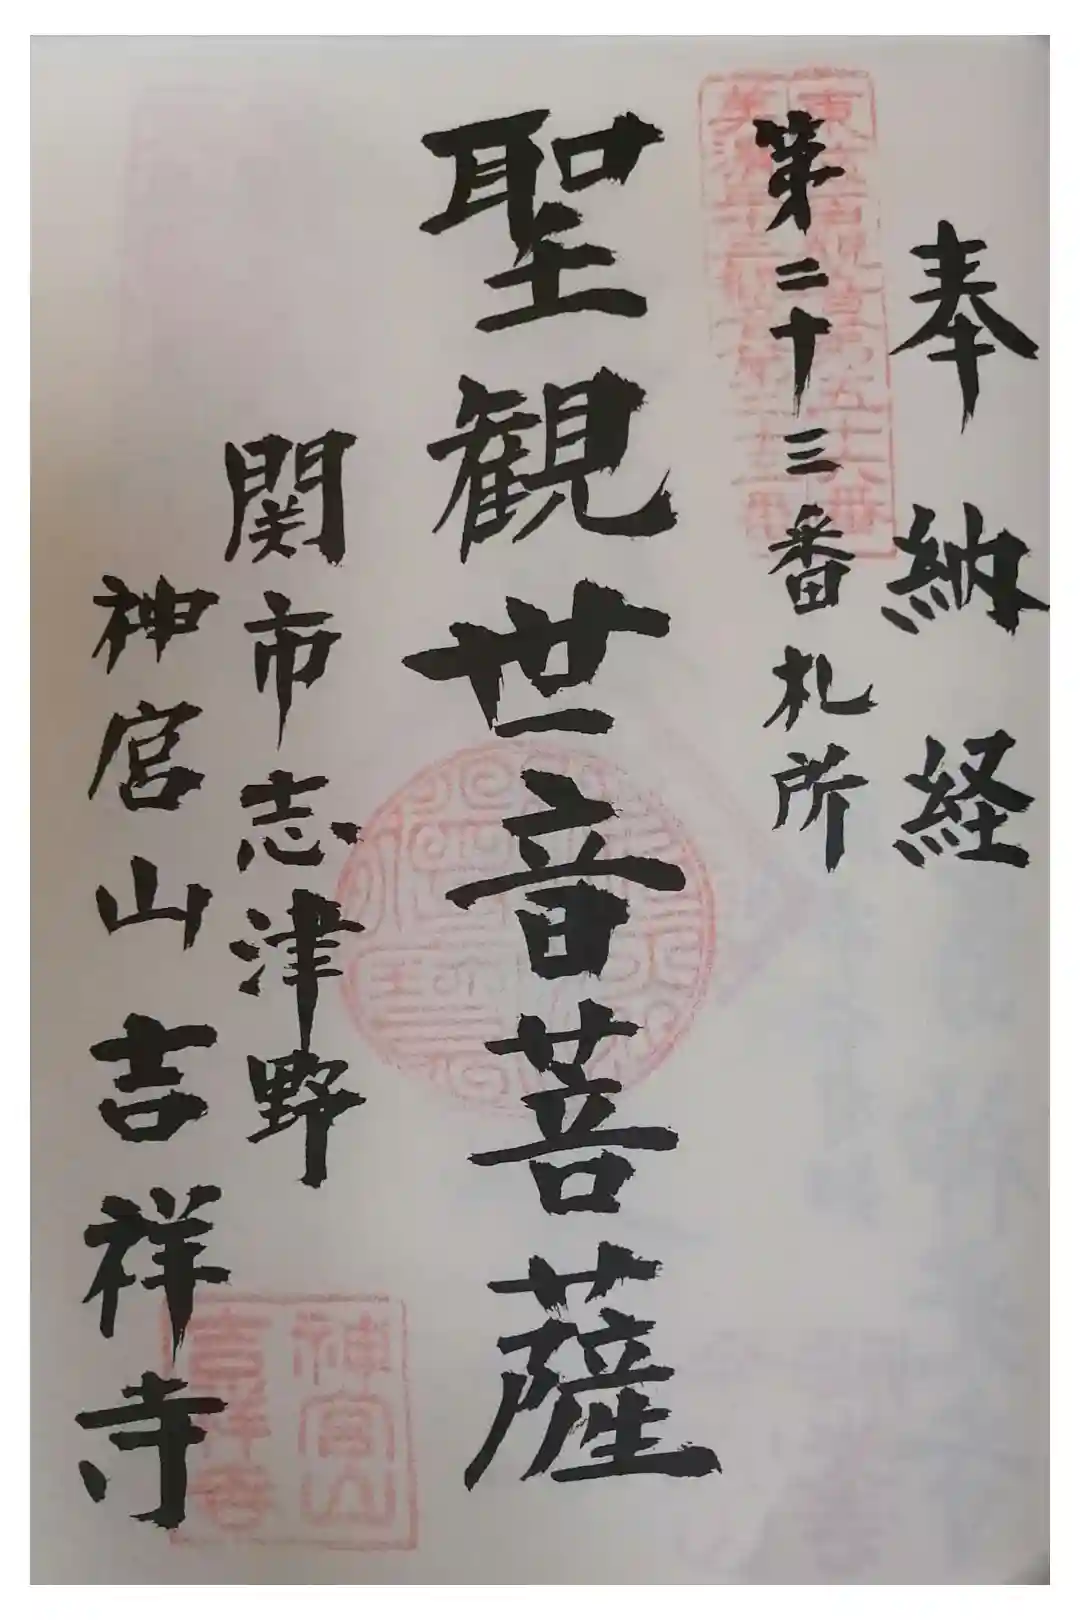 奉納経
第二十三番札所
聖観世音菩薩
関市志津野
神宮山吉祥寺
神宮山
吉祥寺